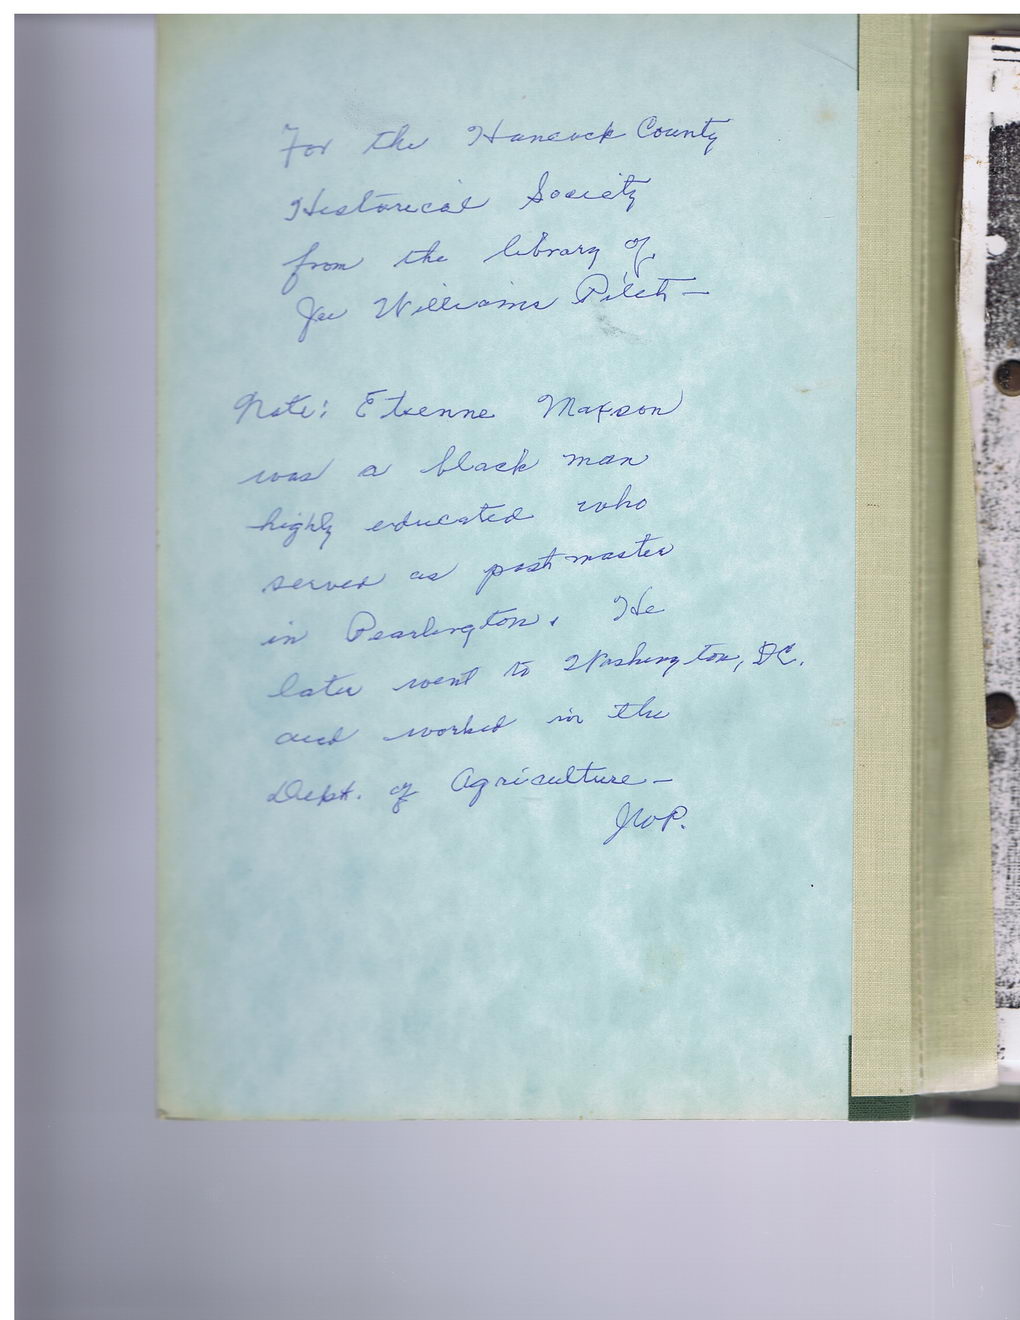 For the Hancock County
Historical Society
from the library of
Joe Williams Pilet—
Note: Etienne Maxson
was a black man
highly educated who
served as postmaster
in Pearlington. He
later went to Washington, DC.
and worked in the
Dept. of Agriculture—
JWP.